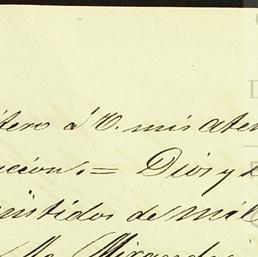 tero á V. mis aten
ucion. = Dios y L
intidos de mil
Mo Miranda